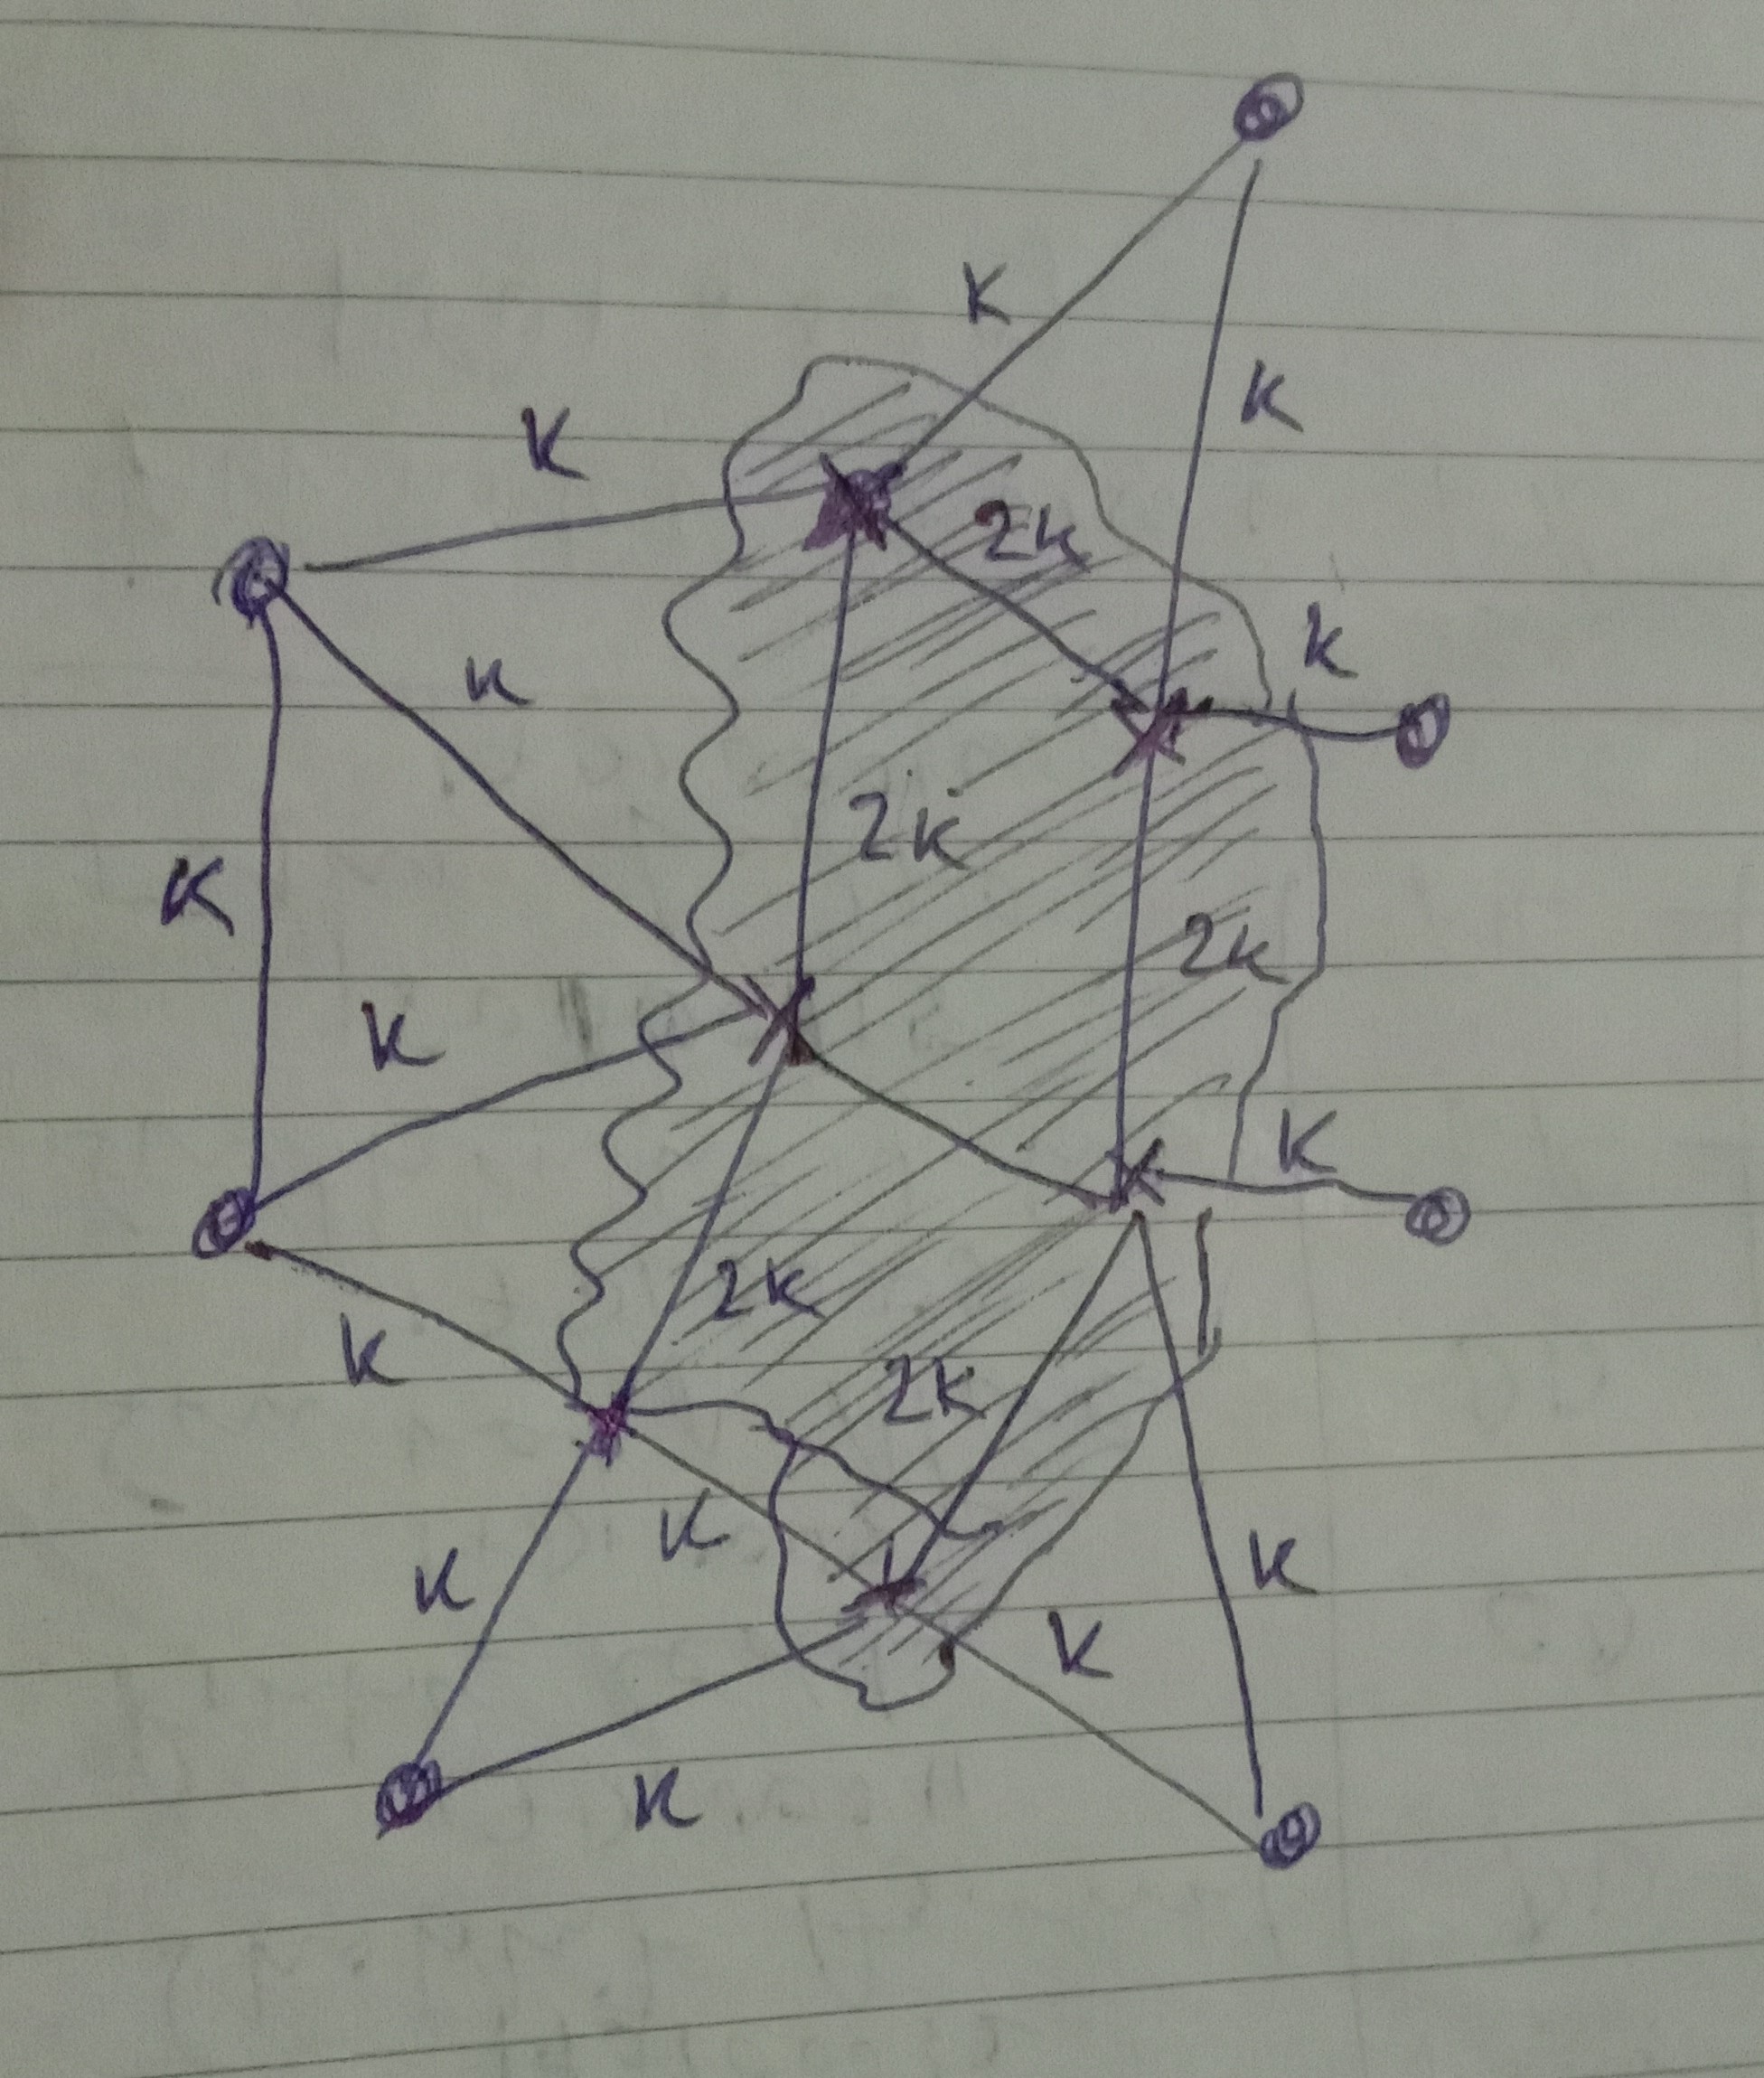 K
K
K
2K
K
K
2K
K
2K
K
K
2K
K
2K
K
K
K
K
K